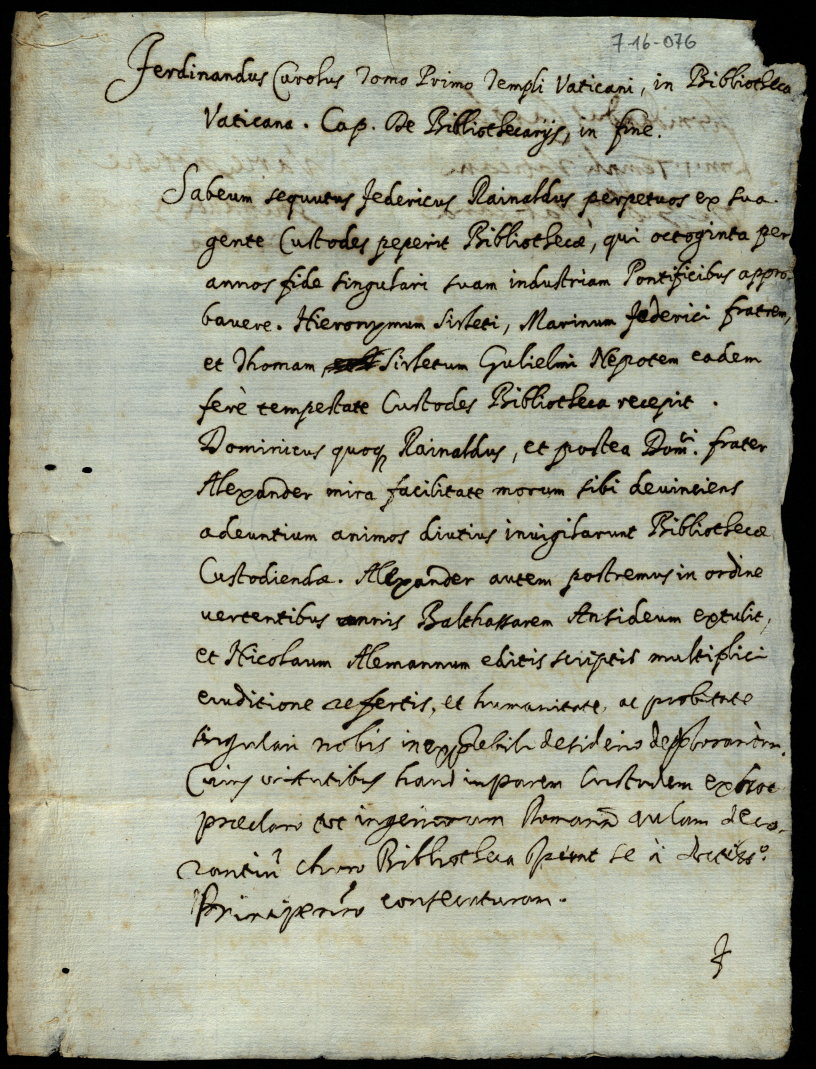 7-16-076
Ferdinandus Carolus Tomo Primo Templi Vaticani, in Bibliotheca
Vaticana. Cap. De Bibliothecarijs, in fine.
Sabeum sequutus Federicus Rainaldus perpetuos ex sua
gente Custodes peperit Bibliothecæ, qui octoginta per
annos fide singulari suam industriam Pontificibus appro-
bavere. Hieronymum Sirleti, Marinum Federici fratrem,
et Thomam Sirletum Gulielmi Nepotem eadem
ferè tempestate Custodes Bibliotheca recepit.
Dominicus quoq Rainaldus, et postea Dom.ci frater
Alexander mira facilitate morum sibi devinciens
adeuntium animos diutius invigilarunt Bibliothecæ
Custodiendæ. Alexander autem postremus in ordine
vertentibus annis Balthassarem Ansideum extulit,
et Nicolaum Alemannum editis scriptis multiplici
eruditione refertis, et humanitate, ac probitate
singulari nobis inexplebili desiderio
Cuius virtutibus haud imparem Custodem ex hoc
præclaro tot ingeniorum Romanã aulam deco-
rantiũ choro Bibliotheca se à
Principe nr̃o